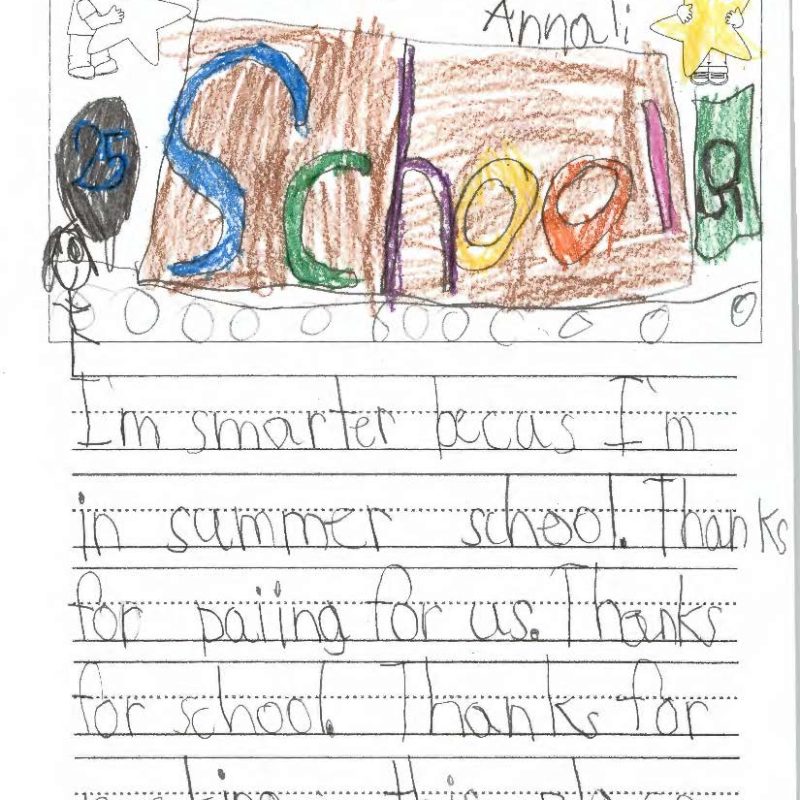 Annali
25
School
I'm smarter becus I'm
in summer school. Thanks
for paiing for us. Thanks
for school. Thanks for
this